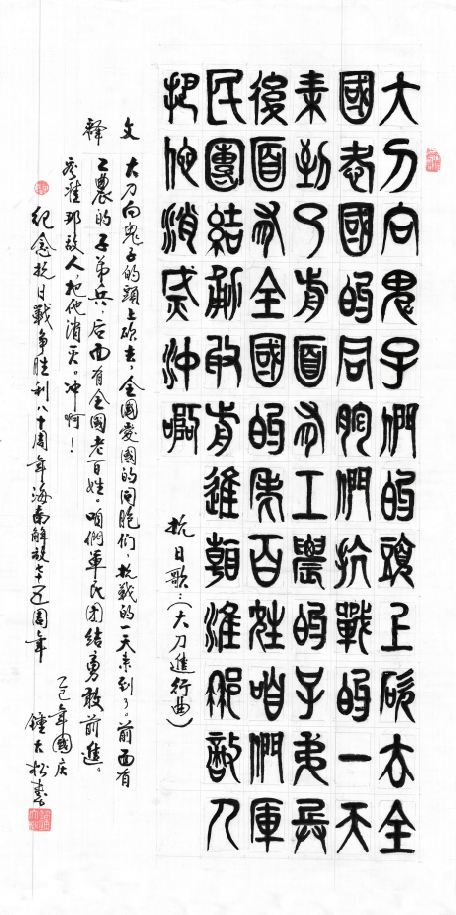 大刀向鬼子們的頭上砍去全
國愛國的同胞們抗戰的一天
來到了前面有工農的子弟兵
後面有全國的老百姓咱們軍
民團結勇敢前進看准那敵人
把他消灭沖啊
抗日歌:(大刀進行曲)
释文
大刀向鬼子的頭上砍去,全國愛國的同胞们,抗战的一天来到了前面有
工農的子弟兵,后面有全國老百姓。咱們軍民团结勇敢前進。
看准那敌人,把他消灭。冲啊!
紀念抗日戰争胜利八十周年海南解放七十五周年
乙巳年國庆
鍾大松書